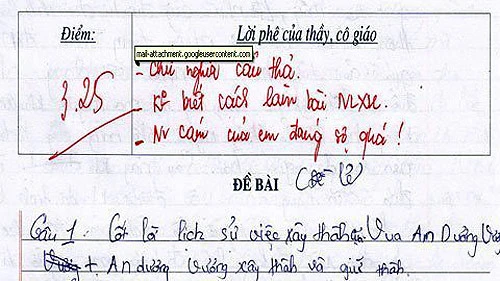 Điểm:
Lời phê của thầy, cô giáo
mail-attachment.googleusercontent.com
3.25
- Chữ nghĩa cẩu thả.
- Ko biết cách làm bài NLXH.
- cảm của em đáng sợ quá!
ĐỀ BÀI
Câu 1: Cốt lõi lịch sử việc xây thành của Vua An Dương Vương
+ An dương Vương xây thành và giữ thành.